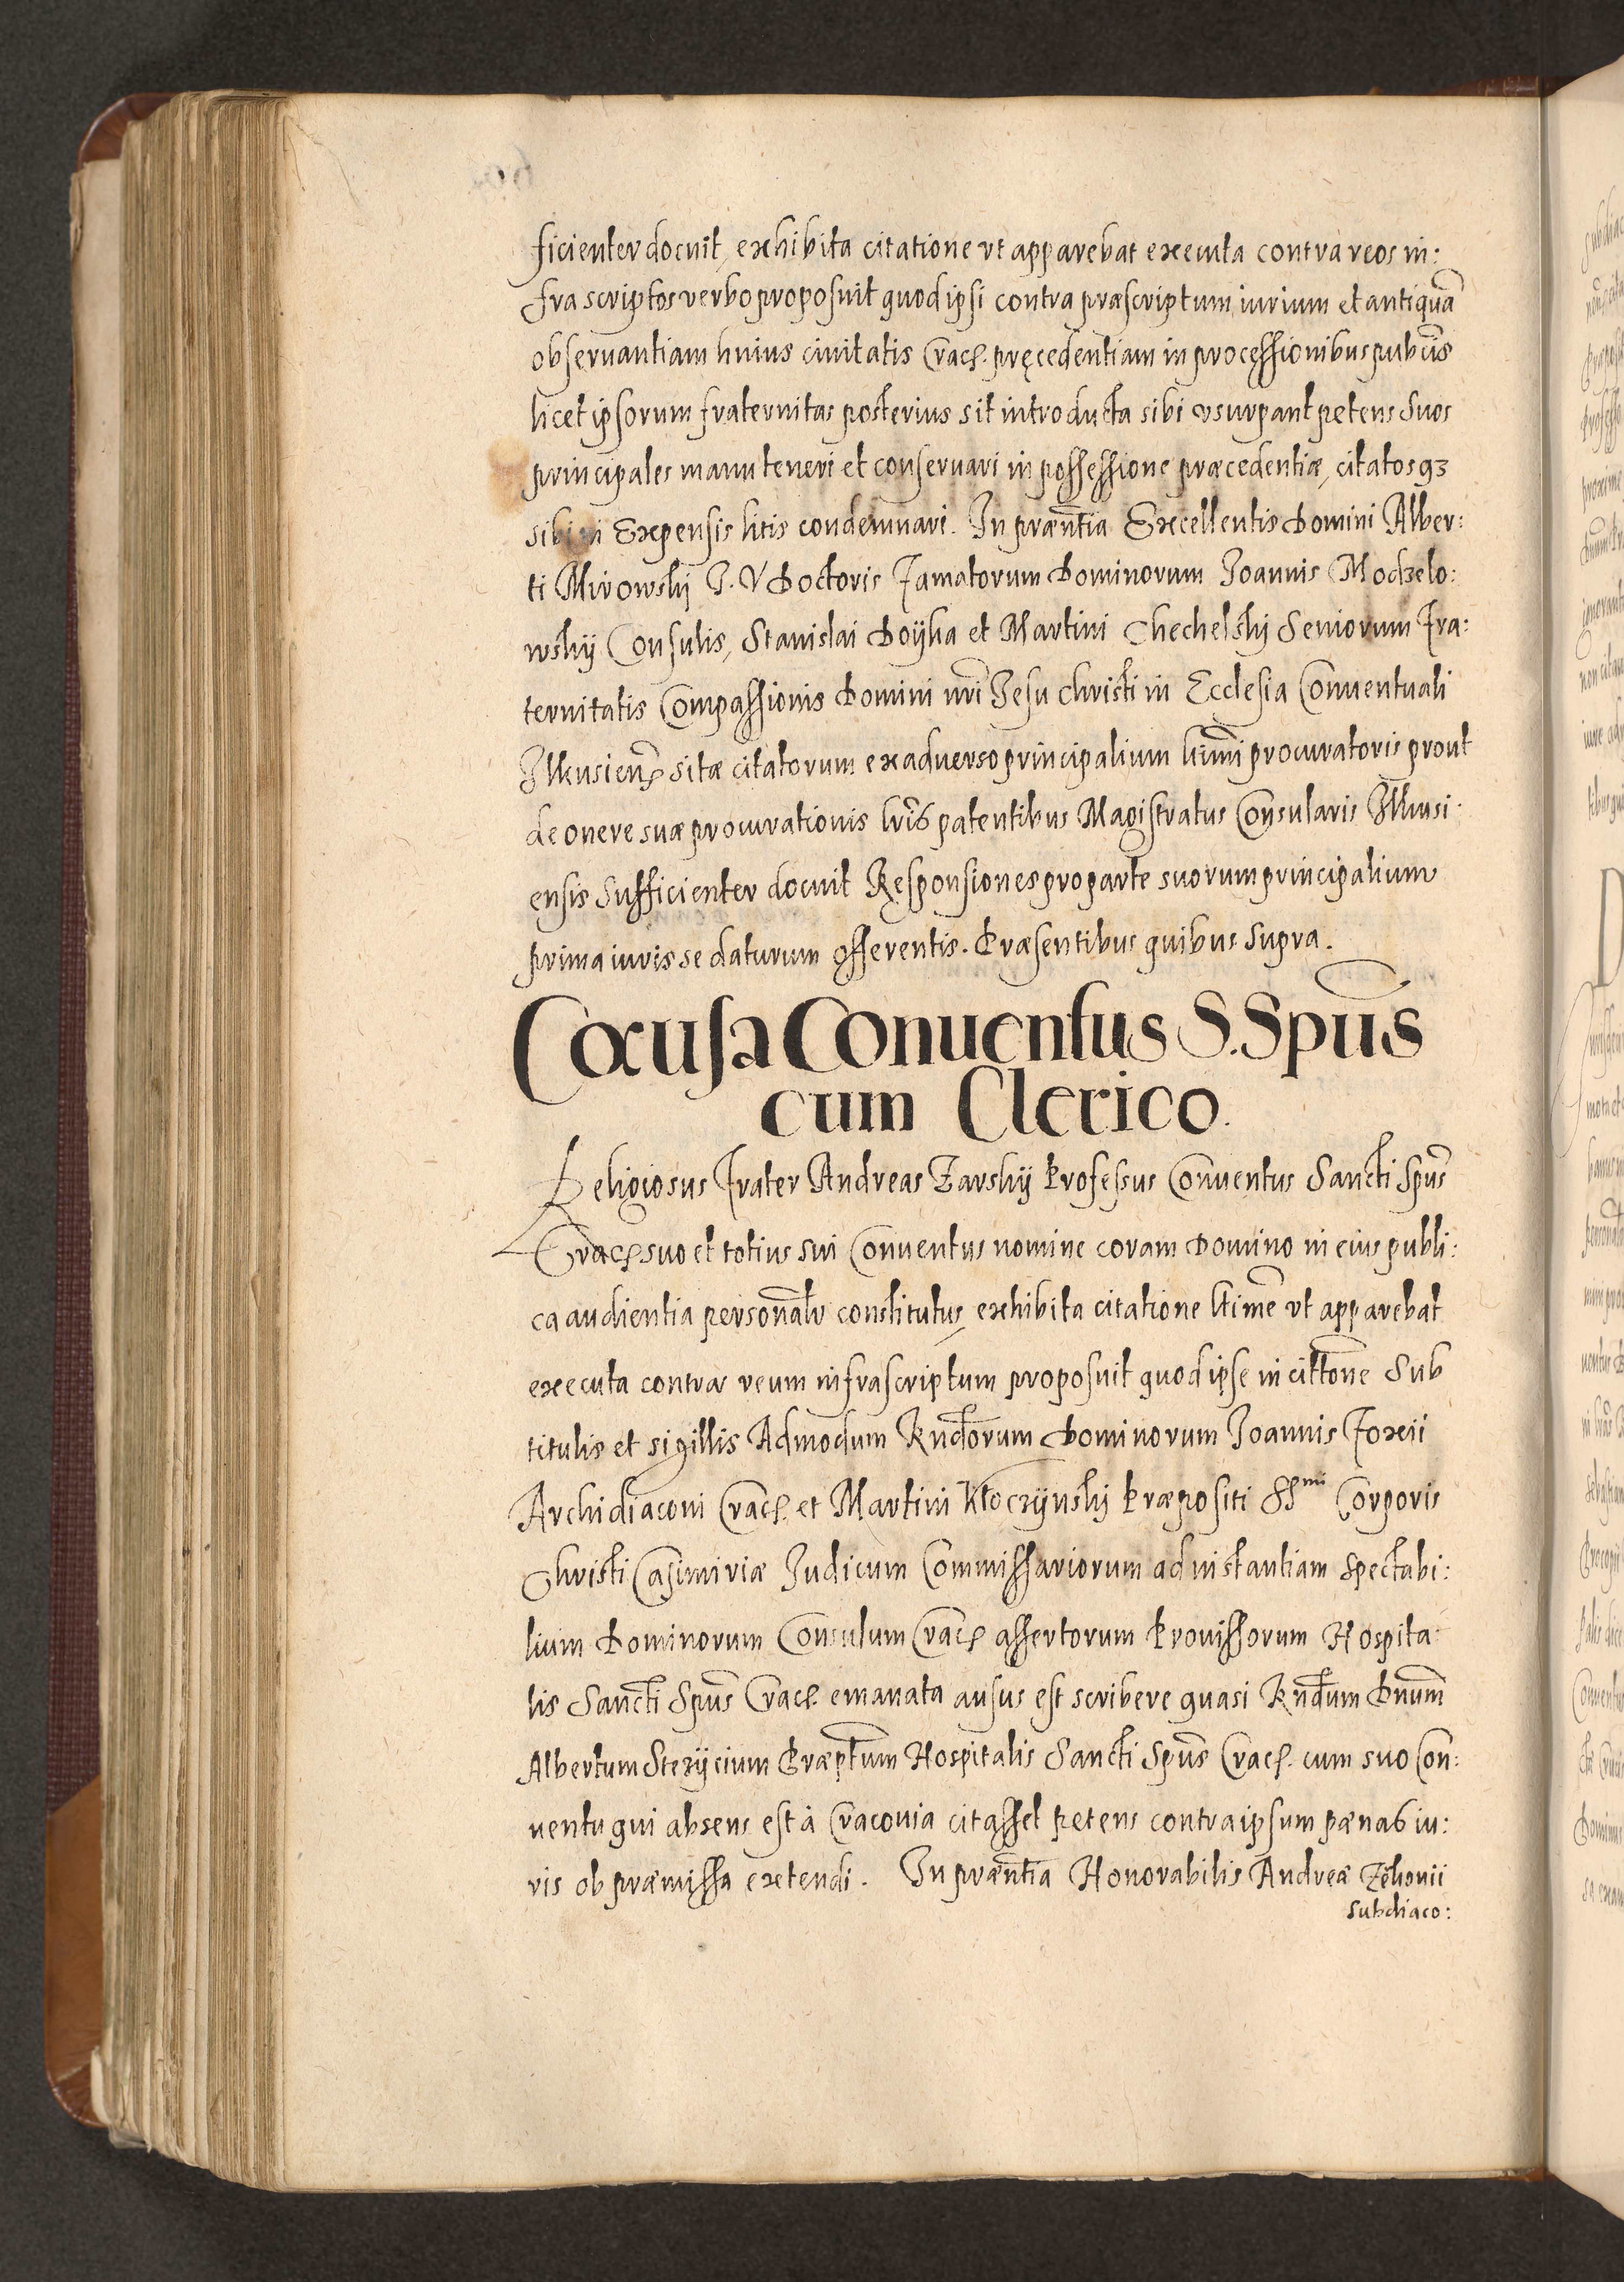 ficienter docuit, exhibita citatione vt apparebat executa contra reos in:
fra scriptos verbo proposuit quod ipsi contra præscriptum iurium et antiquã
obseruantiam huius ciuitatis Crach. pręcedentiam in processionibus pubcis
licet ipsorum fraternitas posterius sit introducta sibi vsurpant petens suos
principales manuteneri et conseruari in possessione præcedentiæ, citatos 93
sibi in Expensis litis condemnari. In præntia Excellentis Domini Alber:
ti Mirowskÿ I. V Doctoris Famatorum Dominorum Joannis Mockelo:
wskÿ Consulis, Stanislai Doÿka et Martini Chechelskÿ Seniorum Fra:
ternitatis Compassionis Domini nri Jesu Christi in Ecclesia Conuentuali
Ilkusien sitæ citatorum ex aduerso principalium ltimi procuratoris prout
de onere suæ procurationis lris patentibus Magistratus Consularis Ilkusi:
ensis sufficienter docuit Responsiones pro parte suorum principalium
prima iuris se daturum offerentis. Præsentibus quibus supra.
Cæusa Conuentus S. Spũs
cum Clerico.
Religiosus Frater Andreas Zarskÿ Professus Conuentus Sancti Spũs
Crach suo et totius sui Conuentus nomine coram Domino in eius publi:
ca audientia personalr constitutus, exhibita citatione ltime vt apparebat
executa contra reum infrascriptum proposuit quod ipse in cittone Sub
titulis et sigillis Admodum Rndorum Dominorum Joannis Foxii
Archidiaconi Crach. et Martini Kłoczÿnskÿ Præpositi SSmi Corporis
Christi Casimiriæ Judicum Commissariorum ad instantiam Spectabi:
lium Dominorum Consulum Crach assertorum Prouissorum Hospita:
lis Sancti Spũs Crach. emanata ausus est scribere quasi Rndum Dnum
Albertum Sterÿcium Præptum Hospitalis Sancti Spũs Crach. cum suo Con:
uentu qui absens est à Cracouia citasset petens contra ipsum pænas iu:
ris ob præmissa extendi. In præntia Honorabilis Andreæ
Subdiaco: